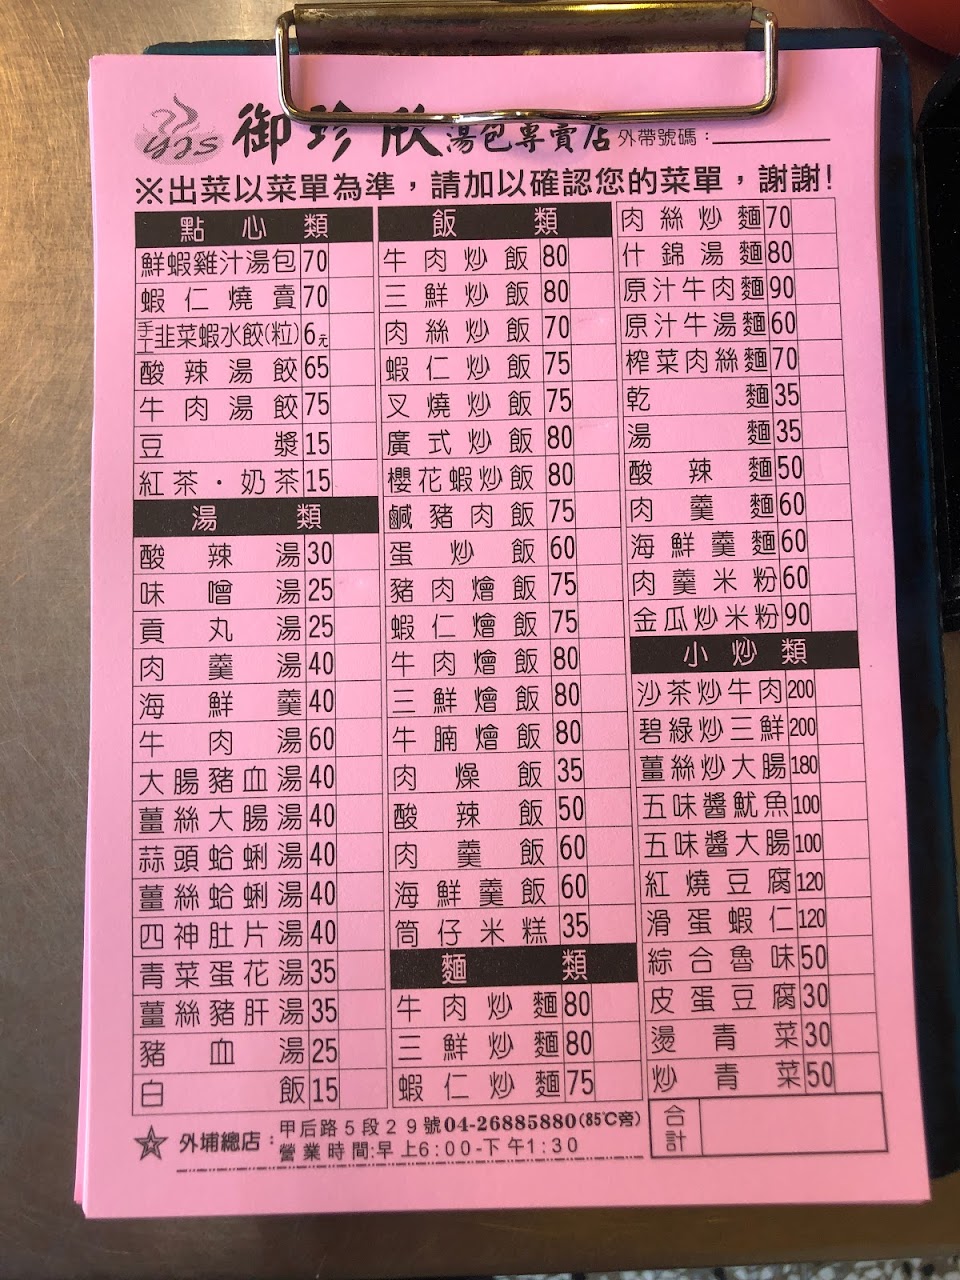 御珍欣湯包專賣店 外帶號碼：
※出菜以菜單為準，請加以確認您的菜單，謝謝!
點心類
鮮蝦雞汁湯包 70
蝦仁燒賣 70
手工韭菜蝦水餃(粒) 6元
酸辣湯餃 65
牛肉湯餃 75
豆漿 15
紅茶．奶茶 15
湯類
酸辣湯 30
味噌湯 25
貢丸湯 25
肉羹湯 40
海鮮羹 40
牛肉湯 60
大腸豬血湯 40
薑絲大腸湯 40
蒜頭蛤蜊湯 40
薑絲蛤蜊湯 40
四神肚片湯 40
青菜蛋花湯 35
薑絲豬肝湯 35
豬血湯 25
白飯 15
飯類
牛肉炒飯 80
三鮮炒飯 80
肉絲炒飯 70
蝦仁炒飯 75
叉燒炒飯 75
廣式炒飯 80
櫻花蝦炒飯 80
鹹豬肉飯 75
蛋炒飯 60
豬肉燴飯 75
蝦仁燴飯 75
牛肉燴飯 80
三鮮燴飯 80
牛腩燴飯 80
肉燥飯 35
酸辣飯 50
肉羹飯 60
海鮮羹飯 60
筒仔米糕 35
麵類
牛肉炒麵 80
三鮮炒麵 80
蝦仁炒麵 75
肉絲炒麵 70
什錦湯麵 80
原汁牛肉麵 90
原汁牛湯麵 60
榨菜肉絲麵 70
乾麵 35
湯麵 35
酸辣麵 50
肉羹麵 60
海鮮羹麵 60
肉羹米粉 60
金瓜炒米粉 90
小炒類
沙茶炒牛肉 200
碧綠炒三鮮 200
薑絲炒大腸 180
五味醬魷魚 100
五味醬大腸 100
紅燒豆腐 120
滑蛋蝦仁 120
綜合魯味 50
皮蛋豆腐 30
燙青菜 30
炒青菜 50
合計
外埔總店：甲后路5段29號 04-26885880(85℃旁)
營業時間:早上6:00-下午1:30